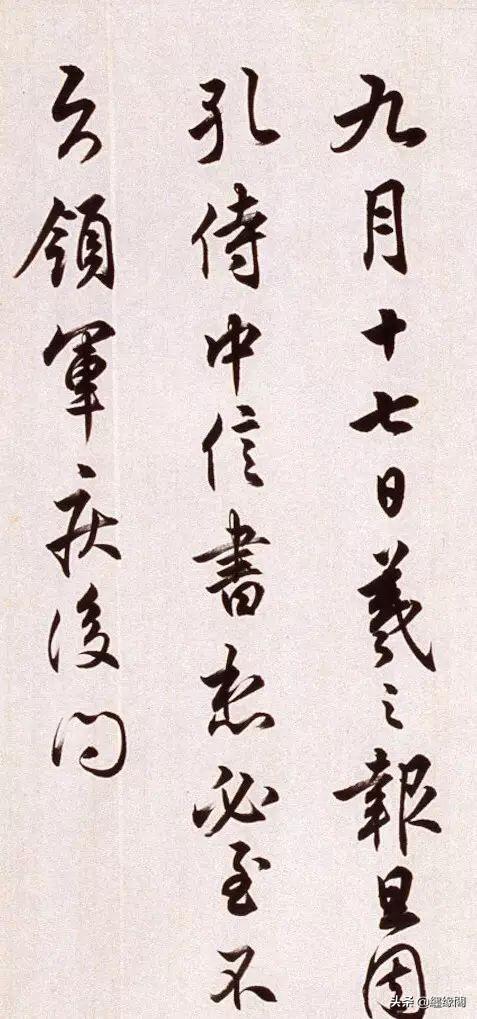 九月十七日羲之報且因
孔侍中信書想必至不
知領軍疾後問
头条 @缠缘阁